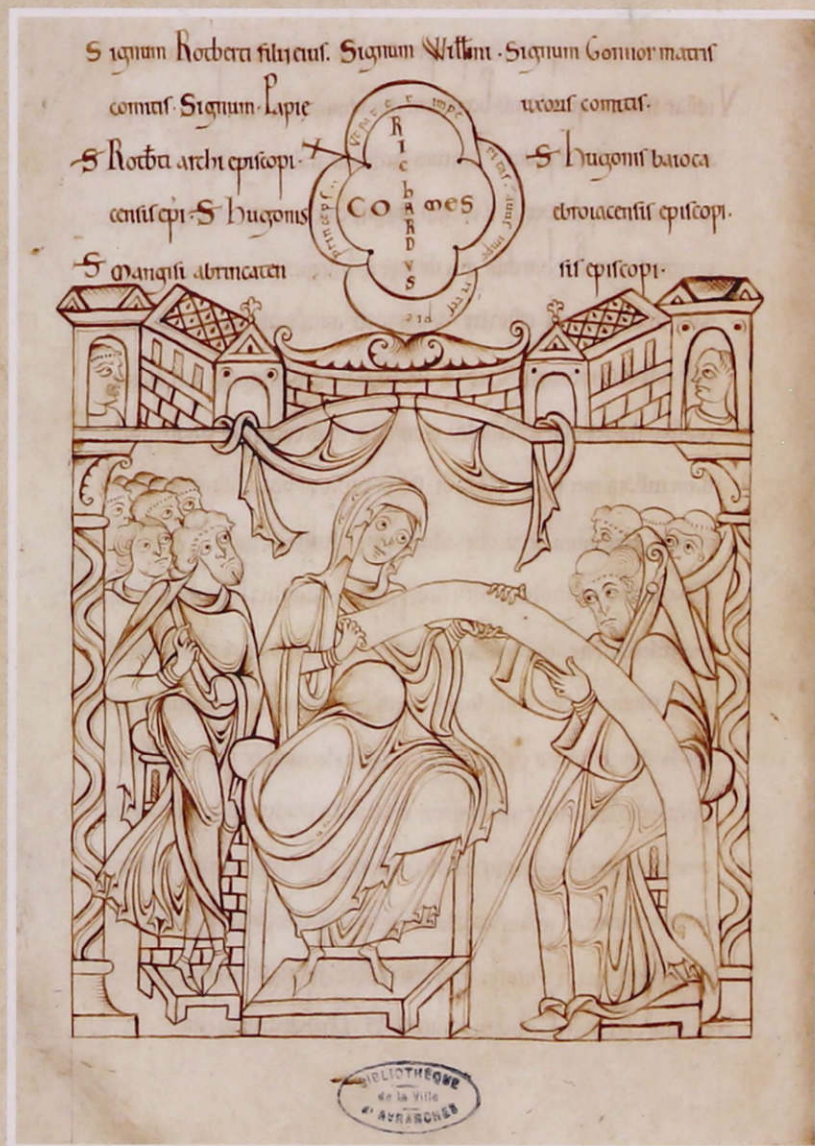 Signum Rotberti filii eius. Signum Willmi. Signum Gonnor matris
comitis. Signum. Papie uxoris comitis.
S Rotbti archiepiscopi. S hugonis baioca
censis epi. S hugonis ebroiacensis episcopi.
S mangisi abrincaten sis episcopi.
RicharDVS
COmes
BIBLIOTHÈQUE
de la Ville
D'AVRANCHES